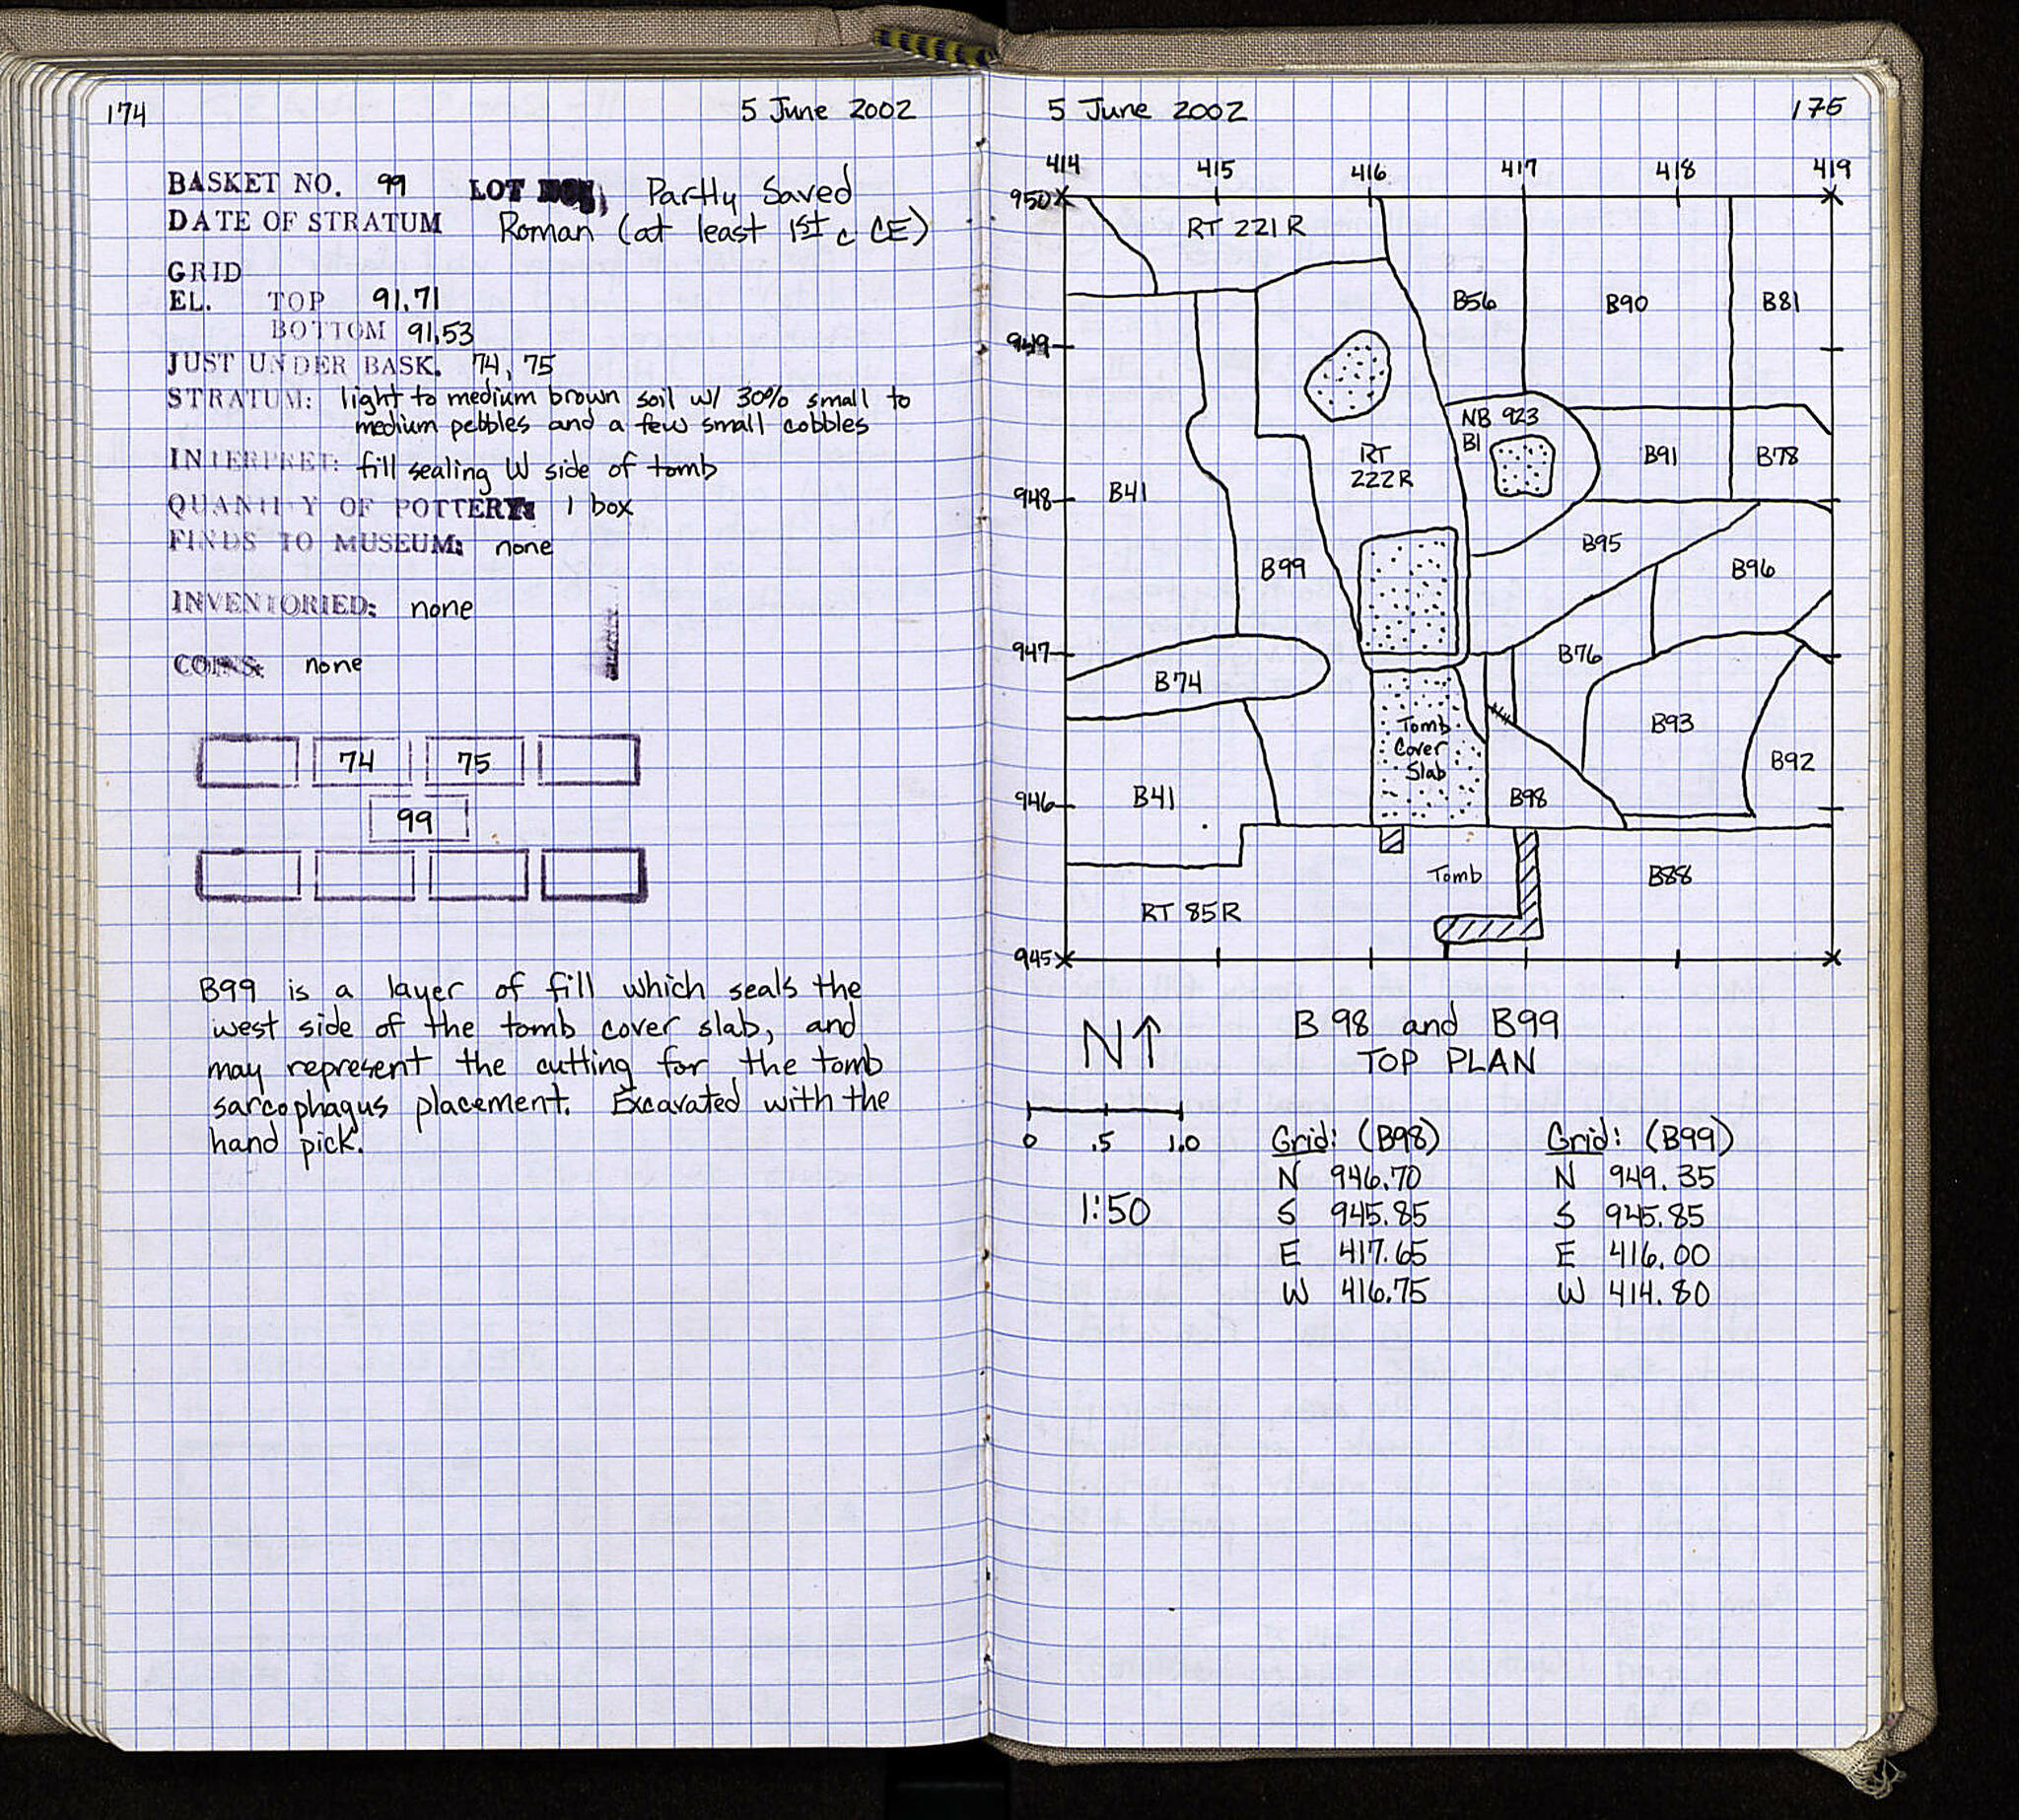 174
5 June 2002
BASKET NO. 99 LOT Partly Saved
DATE OF STRATUM Roman (at least 1st c CE)
GRID
EL. TOP 91.71
BOTTOM 91.53
JUST UNDER BASK. 74, 75
STRATUM: light to medium brown soil w/ 30% small to
medium pebbles and a few small cobbles
INTERPRET: fill sealing W side of tomb
QUANTITY OF POTTERY: 1 box
FINDS TO MUSEUM: none
INVENTORIED: none
COINS: none
74 75
99
B99 is a layer of fill which seals the
west side of the tomb cover slab, and
may represent the cutting for the tomb
sarcophagus placement. Excavated with the
hand pick.
5 June 2002
175
414 415 416 417 418 419
950
RT 221 R
B56 B90 B81
949
NB 923
B1
RT
222R
B91 B78
B41
948
B95
B99
B96
947
B76
B74
Tomb
Cover
Slab
B93
B92
B41
946
B98
Tomb
B88
RT 85R
945
N↑
B 98 and B99
TOP PLAN
0 .5 1.0
1:50
Grid: (B98)
N 946.70
S 945.85
E 417.65
W 416.75
Grid: (B99)
N 949.35
S 945.85
E 416.00
W 414.80